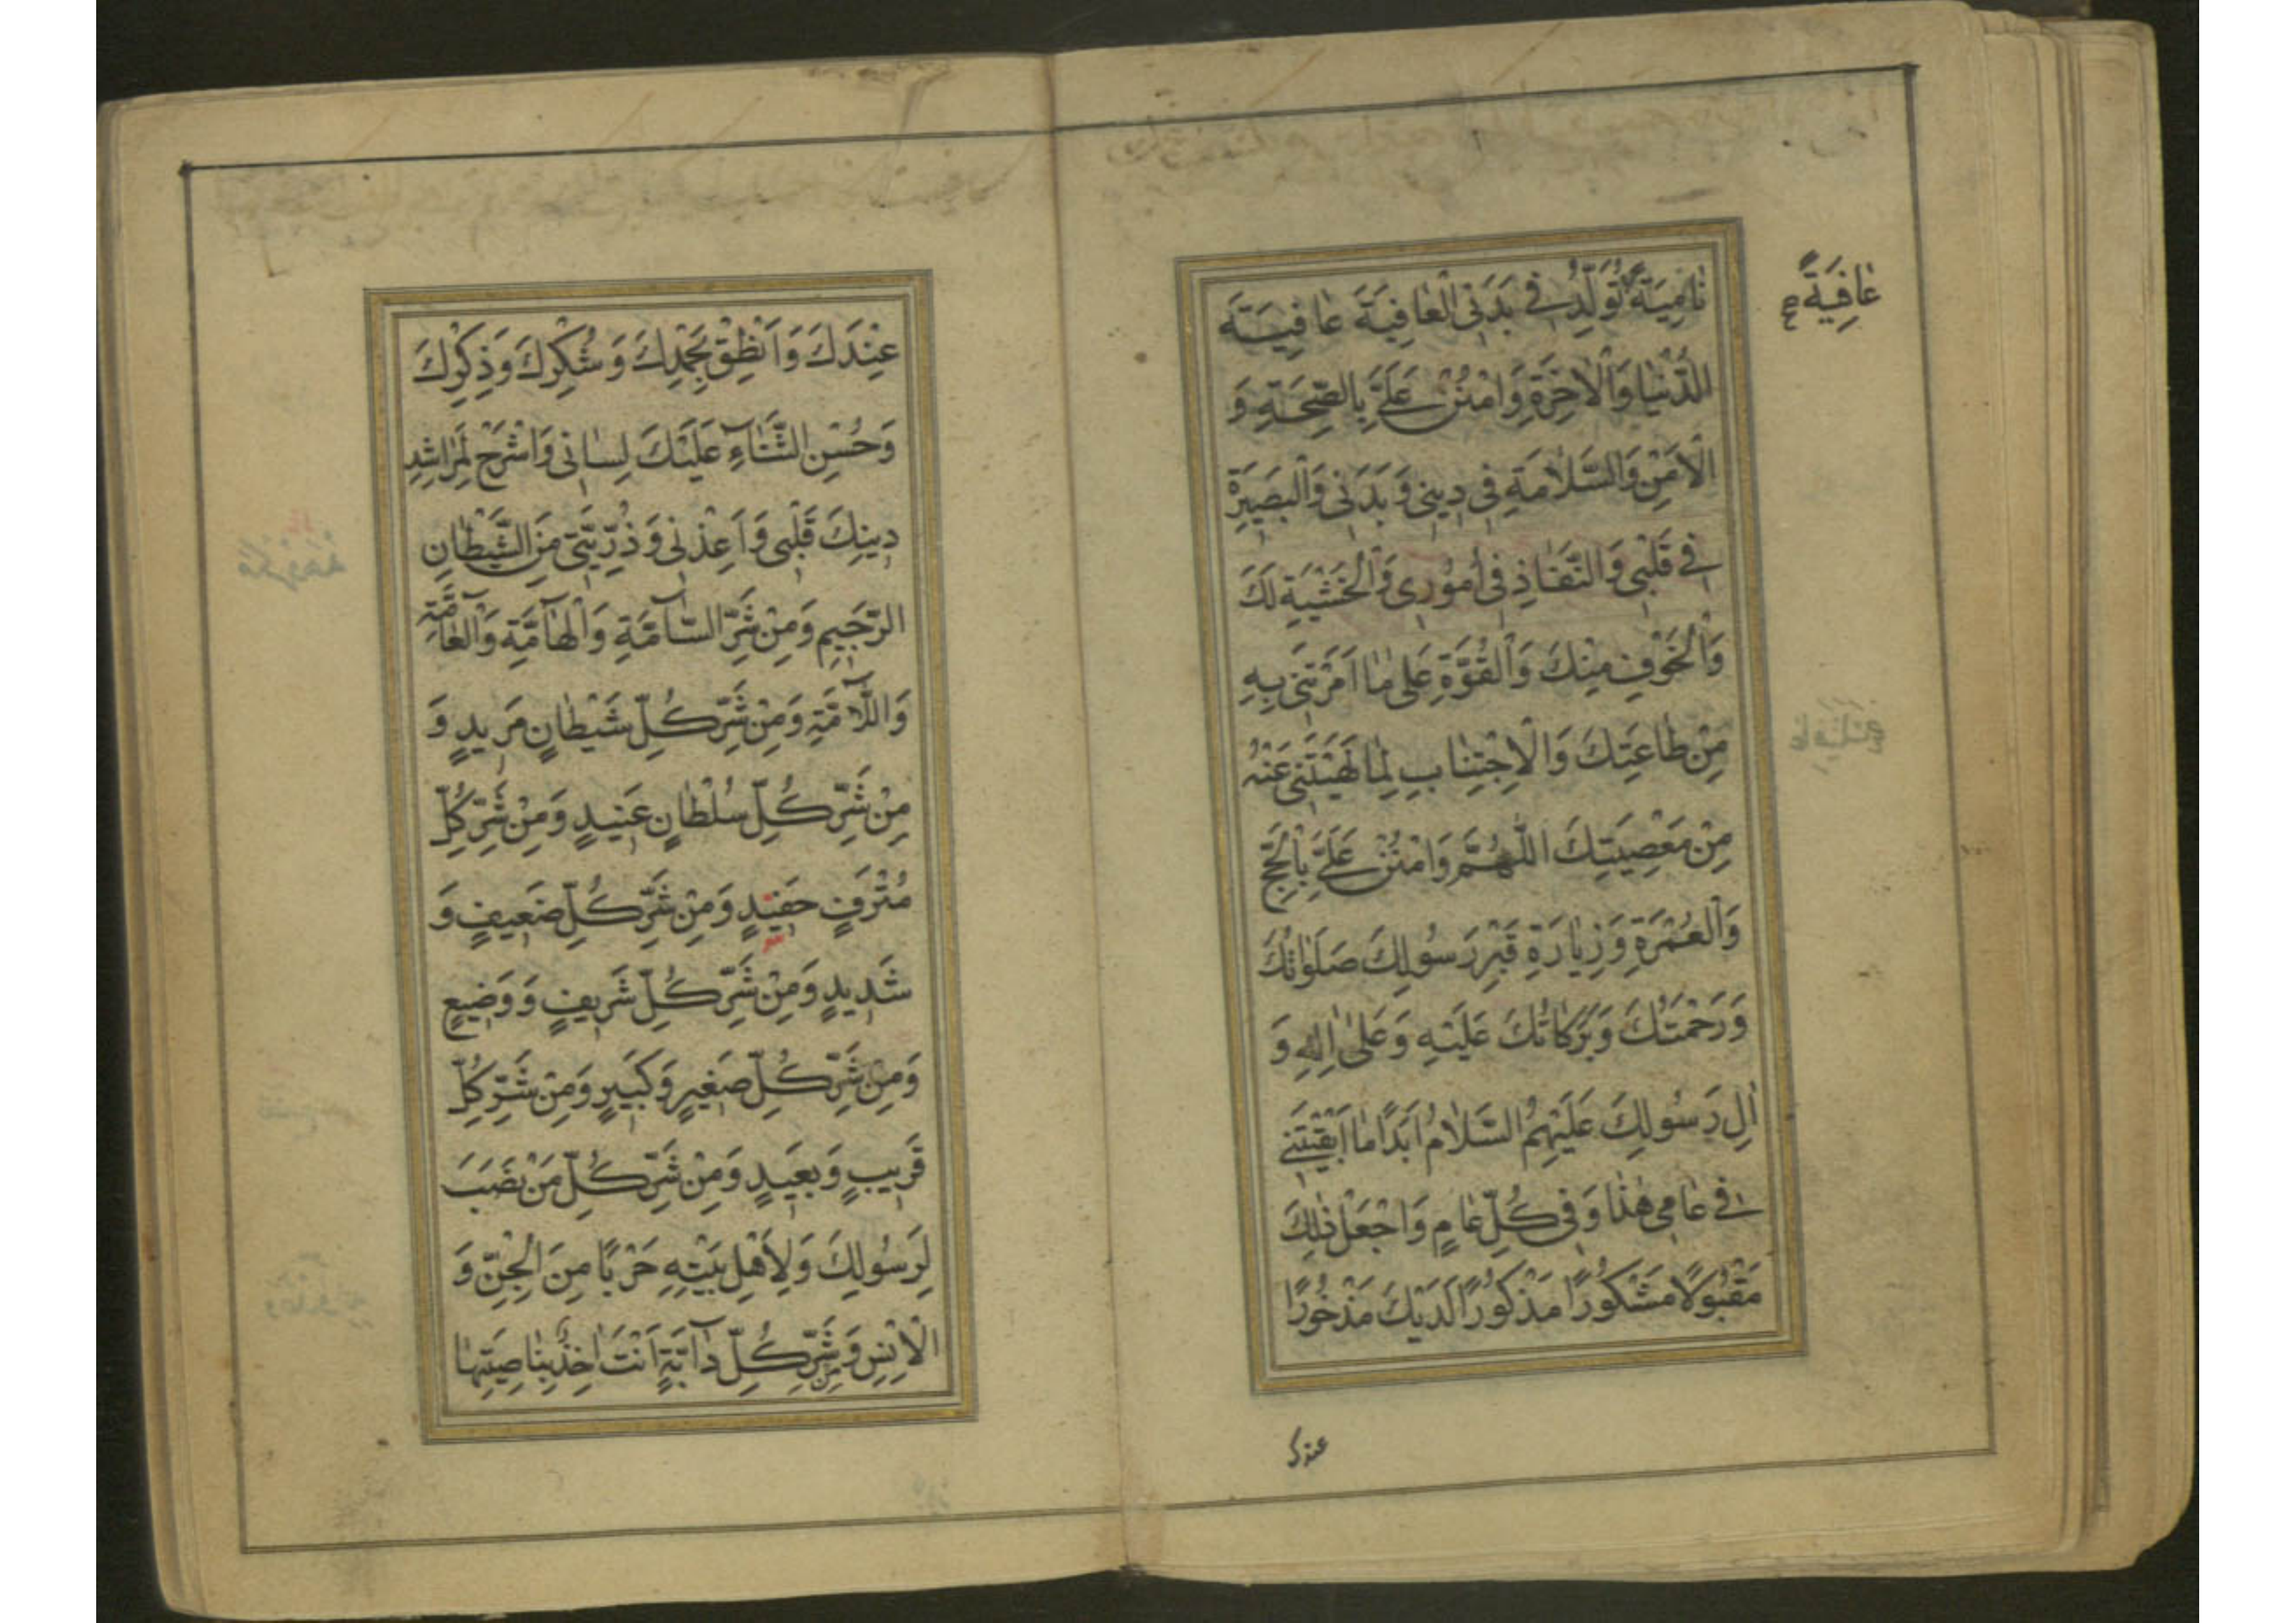 عٰافِيَةً صح
نٰامِيَةً تُوَلِّدُ فى بَدَنِى الْعٰافِيَةَ عٰافِيَةَ
الدُّنْيٰا وَالْاٰخِرَةِ وَامْنُنْ عَلَىَّ بِالصِّحَّةِ وَ
الْاَمْنِ وَالسَّلٰامَةِ فى دِينى وَبَدَنى وَالْبَصِيرَةِ
فى قَلْبى وَالنَّفٰاذِ فى اُمُورى وَالْخَشْيَةِ لَكَ
وَالْخَوْفِ مِنْكَ وَالْقُوَّةِ عَلىٰ مٰا اَمَرْتَنى بِهِ
مِنْ طٰاعَتِكَ وَالْاِجْتِنٰابِ لِمٰا نَهَيْتَنى عَنْهُ
مِنْ مَعْصِيَتِكَ اللّٰهُمَّ وَامْنُنْ عَلَىَّ بِالْحَجِّ
وَالْعُمْرَةِ وَزِيٰارَةِ قَبْرِ رَسُولِكَ صَلَوٰاتُكَ
وَرَحْمَتُكَ وَبَرَكٰاتُكَ عَلَيْهِ وَعَلىٰ اٰلِهِ وَ
اٰلِ رَسُولِكَ عَلَيْهِمُ السَّلٰامُ اَبَدًا مٰا اَبْقَيْتَنى
فى عٰامى هٰذٰا وَفى كُلِّ عٰامٍ وَاجْعَلْ ذٰلِكَ
مَقْبُولًا مَشْكُورًا مَذْكُورًا لَدَيْكَ مَذْخُورًا
عندك
عِنْدَكَ وَاَنْطِقْ بِحَمْدِكَ وَشُكْرِكَ وَذِكْرِكَ
وَحُسْنِ الثَّنٰآءِ عَلَيْكَ لِسٰانى وَاشْرَحْ لِمَرٰاشِدِ
دِينِكَ قَلْبى وَاَعِذْنى وَذُرِّيَّتى مِنَ الشَّيْطٰانِ
الرَّجِيمِ وَمِنْ شَرِّ السّٰآمَّةِ وَالْهٰآمَّةِ وَالْعٰآمَّةِ
وَاللّٰآمَّةِ وَمِنْ شَرِّ كُلِّ شَيْطٰانٍ مَرِيدٍ وَ
مِنْ شَرِّ كُلِّ سُلْطٰانٍ عَنِيدٍ وَمِنْ شَرِّ كُلِّ
مُتْرَفٍ حَفِيدٍ وَمِنْ شَرِّ كُلِّ ضَعِيفٍ وَ
شَدِيدٍ وَمِنْ شَرِّ كُلِّ شَرِيفٍ وَوَضِيعٍ
وَمِنْ شَرِّ كُلِّ صَغِيرٍ وَكَبِيرٍ وَمِنْ شَرِّ كُلِّ
قَرِيبٍ وَبَعِيدٍ وَمِنْ شَرِّ كُلِّ مَنْ نَصَبَ
لِرَسُولِكَ وَلِاَهْلِ بَيْتِهِ حَرْبًا مِنَ الْجِنِّ وَ
الْاِنْسِ وَمِنْ شَرِّ كُلِّ دٰآبَّةٍ اَنْتَ اٰخِذٌ بِنٰاصِيَتِهٰا